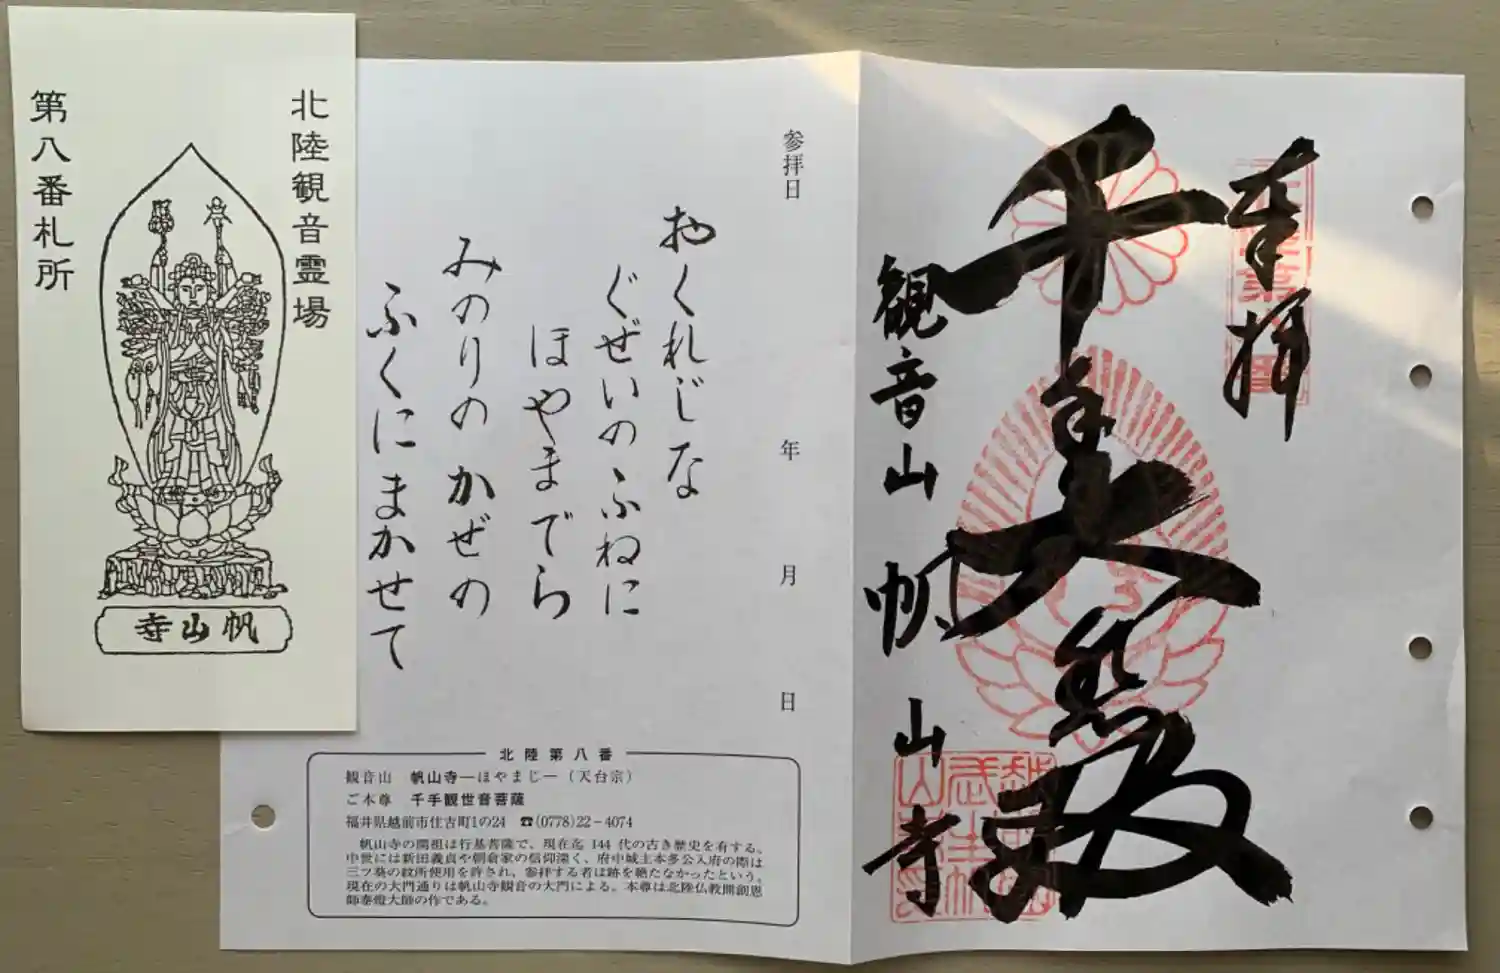 北陸観音霊場
第八番札所
帆山寺
奉拝
千手大悲殿
観音山 帆山寺
参拝日 年 月 日
おくれじな
ぐぜいのふねに
ほやまでら
みのりのかぜの
ふくにまかせて
北陸第八番
観音山 帆山寺―ほやまじ―(天台宗)
ご本尊 千手観世音菩薩
福井県越前市住吉町1の24 ☎(0778)22－4074
帆山寺の開祖は行基菩薩で、現在迄 144 代の古き歴史を有する。
中世には新田義貞や朝倉家の信仰深く、府中城主本多公入府の際は
三ツ葵の紋所使用を許され、参拝する者は跡を絶たなかったという。
現在の大門通りは帆山寺観音の大門による。本尊は北陸仏教開創恩
師泰燈大師の作である。